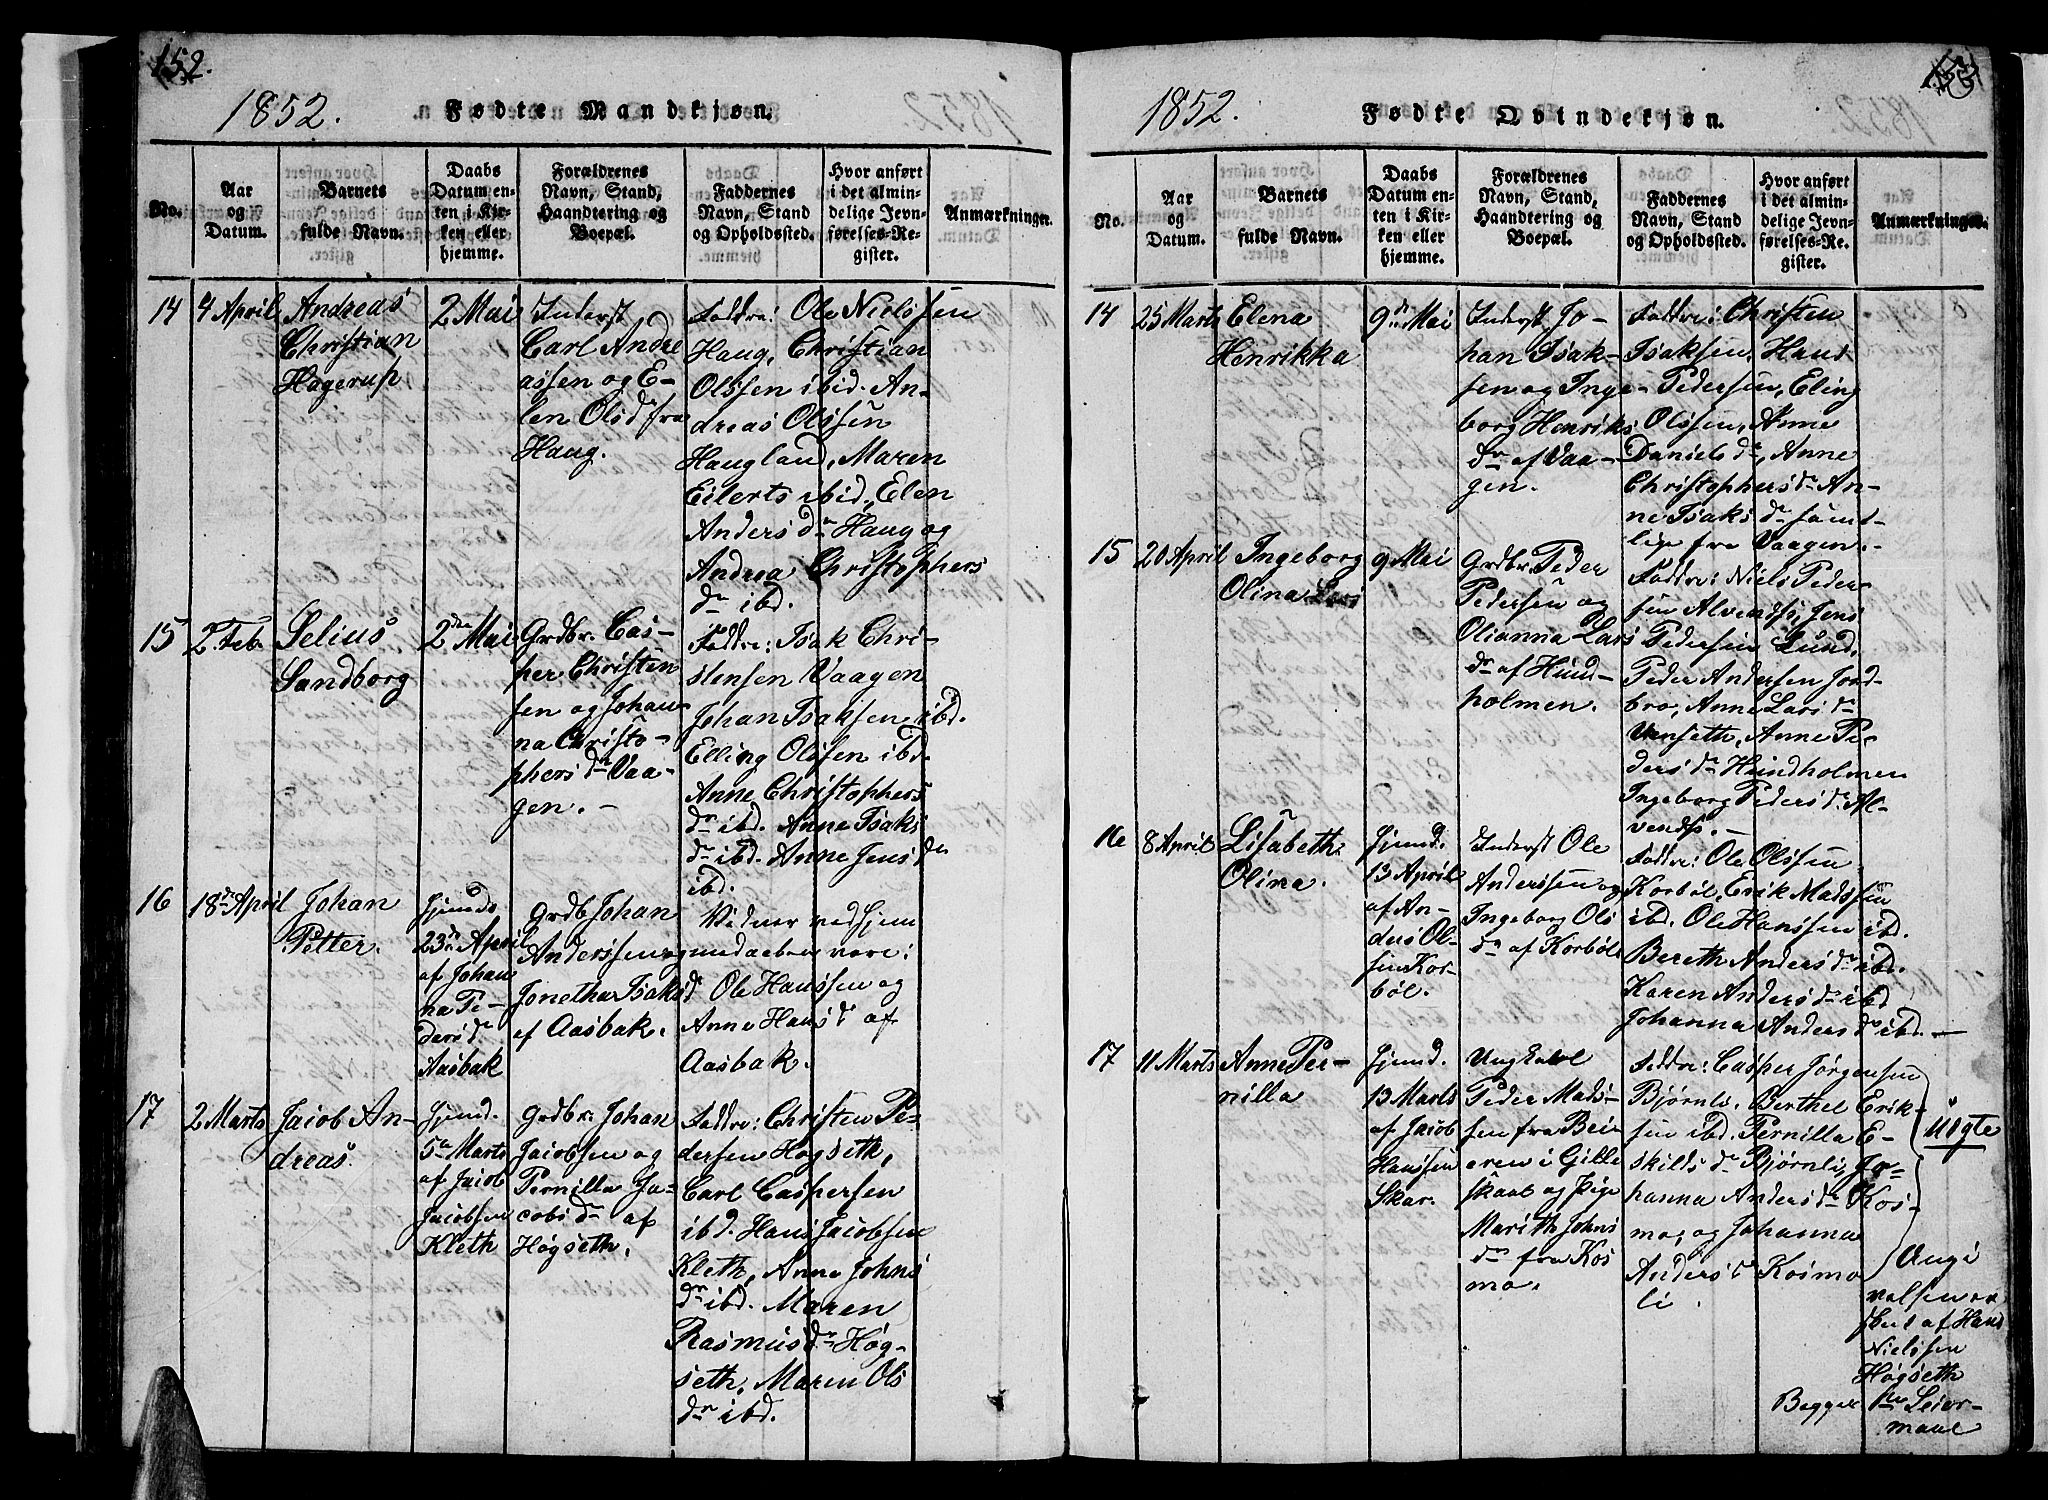 152.
1852.
Fødte Mandkjøn.
No.
Aar
og
Datum.
Barnets
fulde Navn.
Daabs
Datum en-
ten i Kir-
ken eller
hjemme.
Forældrenes
Navn, Stand,
Haandtering og
Boepæl.
Faddernes
Navn, Stand
og Opholdssted.
Hvor anført
i det almin-
delige Jevn-
førelses-Re-
gister.
Anmærkninger.
14
4 April
Andreas
Christian
Hagerup
2 Mai
Inderst
Carl Andre
assen og E-
len Olsdr fra
Haug.
Faddre: Ole Nielssen
Haug, Christian
Olssen ibid. An-
dreas Olssen
Haugland, Maren
Eilerts ibid, Elen
Anders dr Haug og
Andrea Christophers
dr ibd.
15
2 Feb.
Selius
Sandborg
2den Mai
Grdbr. Cas-
per Christen
sen og Johan-
na Christo-
phers dr Vaa-
gen. -
Faddre: Isak Chri-
stensen Vaagen
Johan Isaksen ibd.
Elling Olssen ibd.
Anne Christophers
dr ibd. Anne Isaks
dr ibd. Anne Jens dr
ibd.
16
18de April
Johan
Petter.
hjemds
23de April
af Johan
na Pe-
dersdr
Aasbak
Grdb Johan
Anderssen og
Jonetha Isaks dr
af Aasbak.
Vidner ved hjem
medaaben vare:
Ole Hanssen og
Anne Hans dr af
Aasbak.
17
2 Marts
Jacob An-
dreas.
hjemd.
5te Marts
af Jacob
Jacobsen
Kleth
Grdbr. Johan
Jacobsen og
Pernilla Ja-
cobs dr af
Høgseth.
Faddre: Christen Pe-
dersen Høgseth,
Carl Caspersen
ibd. Hans Jacobsen
Kleth, Anne Johns
dr ibd. Maren
Rasmus dr Høg-
seth, Maren Ols
dr ibd.
1852.
Fødte Qvindekjøn.
No.
Aar
og
Datum.
Barnets
fulde Navn.
Daabs
Datum en-
ten i Kir-
ken eller
hjemme.
Forældrenes
Navn, Stand,
Haandtering og
Boepæl.
Faddernes
Navn, Stand
og Opholdssted.
Hvor anført
i det almin-
delige Jevn-
førelses-Re-
gister.
Anmærkninger.
14
25 Marts
Elena
Henrikka
9de Mai
Inderst Jo-
han Isak-
sen og Inge-
borg Henriks
dr af Vaa-
gen.
Faddre: Christen
Isaksen, Hans
Pedersen, Eling
Olssen, Anne
Daniels dr, Anne
Christophers dr An-
ne Isaks dr samt-
lige fra Vaagen.-
15
20 April
Ingeborg
Olina
9 Mai
Grdbr. Peder
Pedersen og
Olianna Lars
dr af Hund-
holmen.
Faddre: Niels Peder-
sen Alvends, Jens
Pedersen Lund,
Peder Andersen Jord-
bro, Anne Lars dr
Venseth, Anne Pe-
ders dr Hundholmen
Ingeborg Peders dr Al-
vends. -
16
8 April
Lisabeth
Olina.
hjemd.
13 April
af An-
ders Ol-
sen Kor-
bøl.
Inderst Ole
Anderssen og
Ingeborg Ols
dr af Korbøl
Faddre: Ole Olssen
Korbøl, Erik Madssen
ibid. Ole Hanssen ibd.
Bereth Anders dr ibd.
Karen Anders dr ibd
Johanna Anders dr ibd. -
17
11 Marts
Anne Per-
nilla
hjemd.
13 Marts
af Jacob
Hanssen
Skar.
Ungkarl
Peder Mads-
sen fra Bei-
eren i Gille
skaal og Pige
Marith Johns
dr fra Kos
mo.
Faddre: Casper Jørgensen
Bjørnli, Berthel Erik-
sen ibd. Pernilla E-
skilds dr Bjørnli, Jo-
hanna Anders dr Kos-
mo, og Johanna
Anders dr Kosmo
li.
Uægte
Angi
velsen er
af Hans
Nielssen
Høgseth
Begges
Leier-
maal